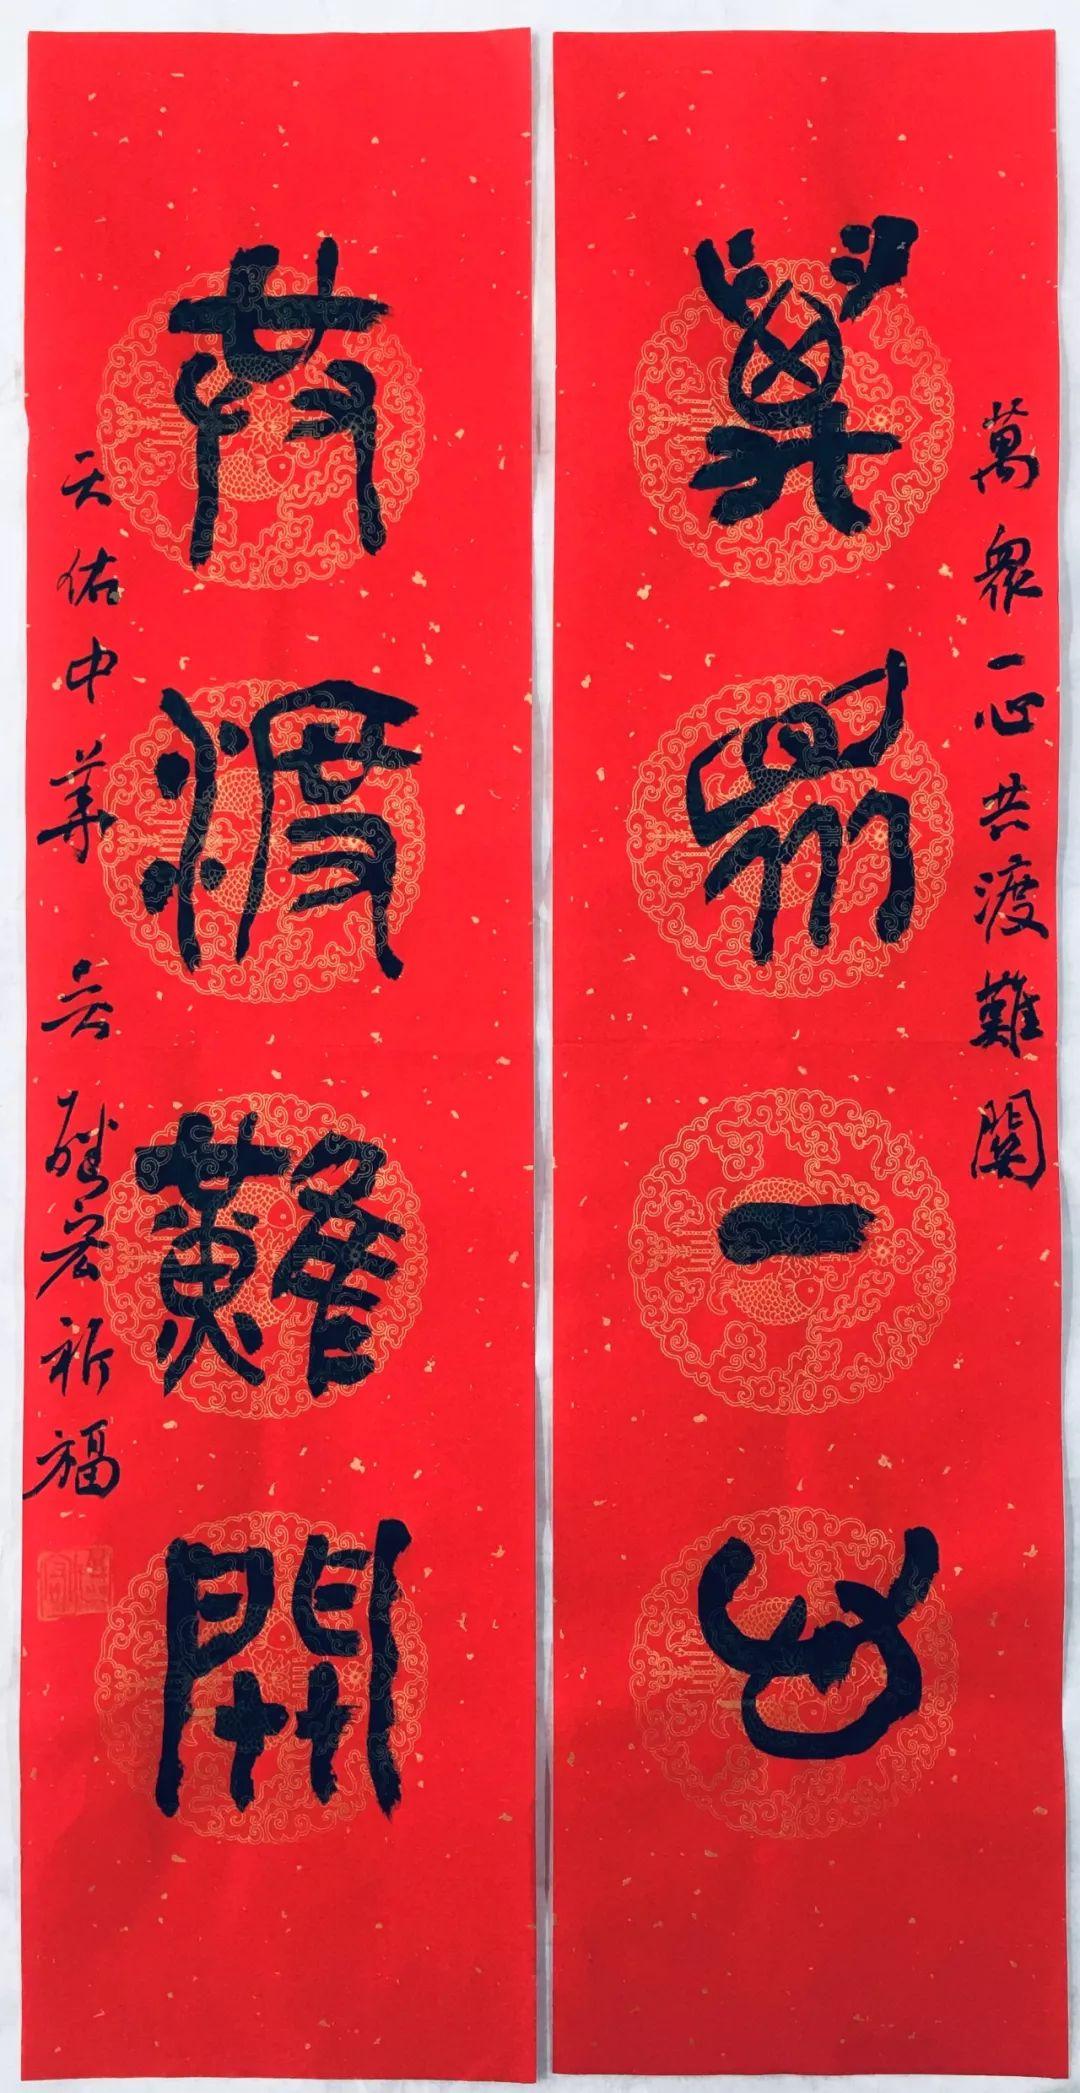 萬衆一心共渡難關
萬衆一心
共渡難關
天佑中華 宏祈福